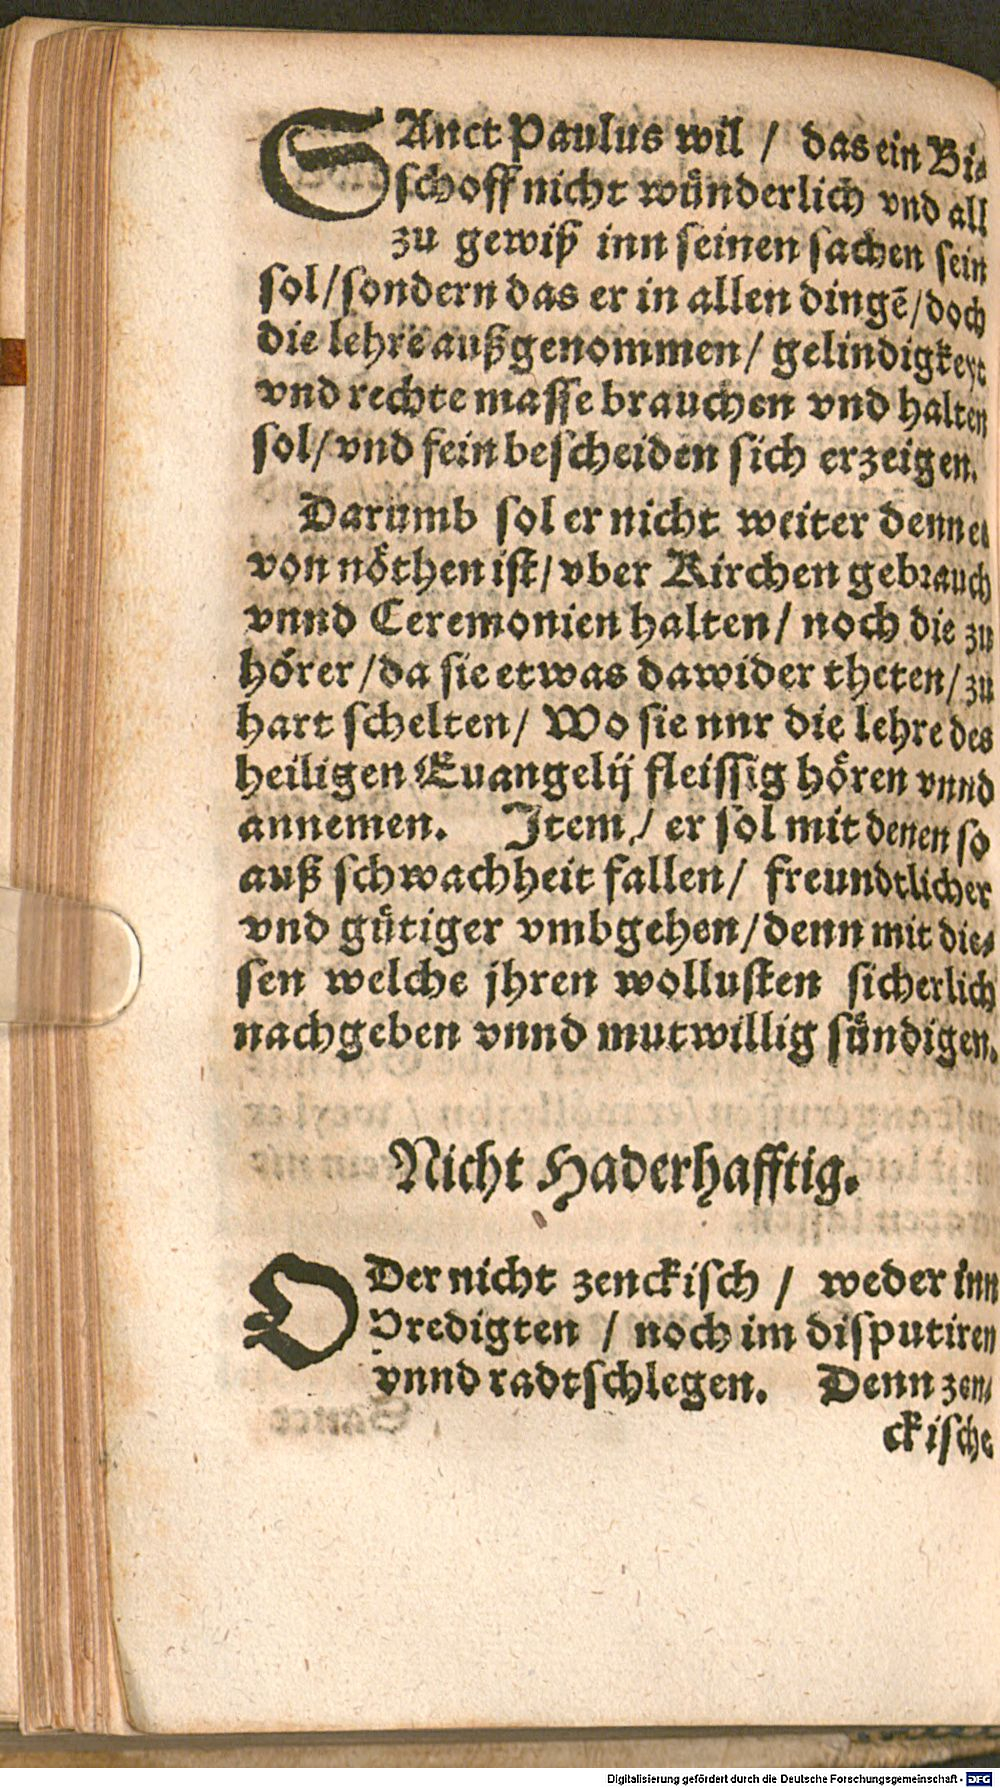 SAnct Paulus wil / das ein Bi-
schoff nicht wünderlich vnd all
zu gewiß inn seinen sachen sein
sol/sondern das er in allen dingē/doch
die lehre außgenommen/ gelindigkeyt
vnd rechte masse brauchen vnd halten
sol/vnd fein bescheiden sich erzeigen.
Darumb sol er nicht weiter denn es
von nöthen ist/vber Kirchen gebrauch
vnnd Ceremonien halten/ noch die zu
hörer/da sie etwas dawider theten/zu
hart schelten/ Wo sie nnr die lehre des
heiligen Euangelij fleissig hören vnnd
annemen. Item / er sol mit denen so
auß schwachheit fallen/ freundtlicher
vnd gütiger vmbgehen/denn mit die-
sen welche jhren wollusten sicherlich
nachgeben vnnd mutwillig sündigen.
Nicht Haderhafftig.
ODer nicht zenckisch / weder inn
Predigten / noch im disputiren
vnnd radtschlegen. Denn zen-
ckische
Digitalisierung gefördert durch die Deutsche Forschungsgemeinschaft - DFG